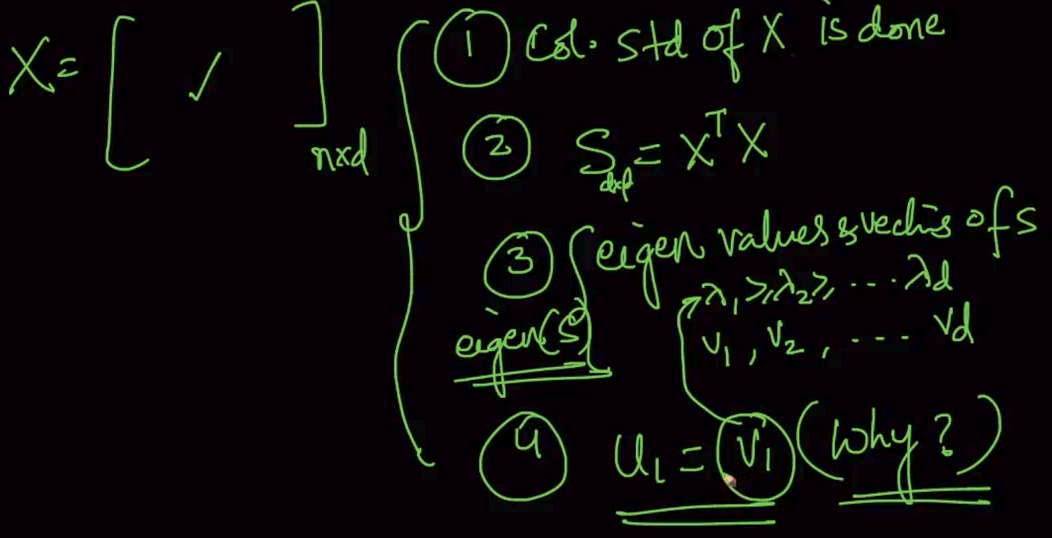 X = [ ✓ ] n×d
① Col. std of X is done
② S d×d = X^T X
③ eigen values & vectors of S
λ₁ ≥ λ₂ ≥ ... λd
eigen(S)
V₁, V₂, ... Vd
④ U₁ = V₁ (Why?)